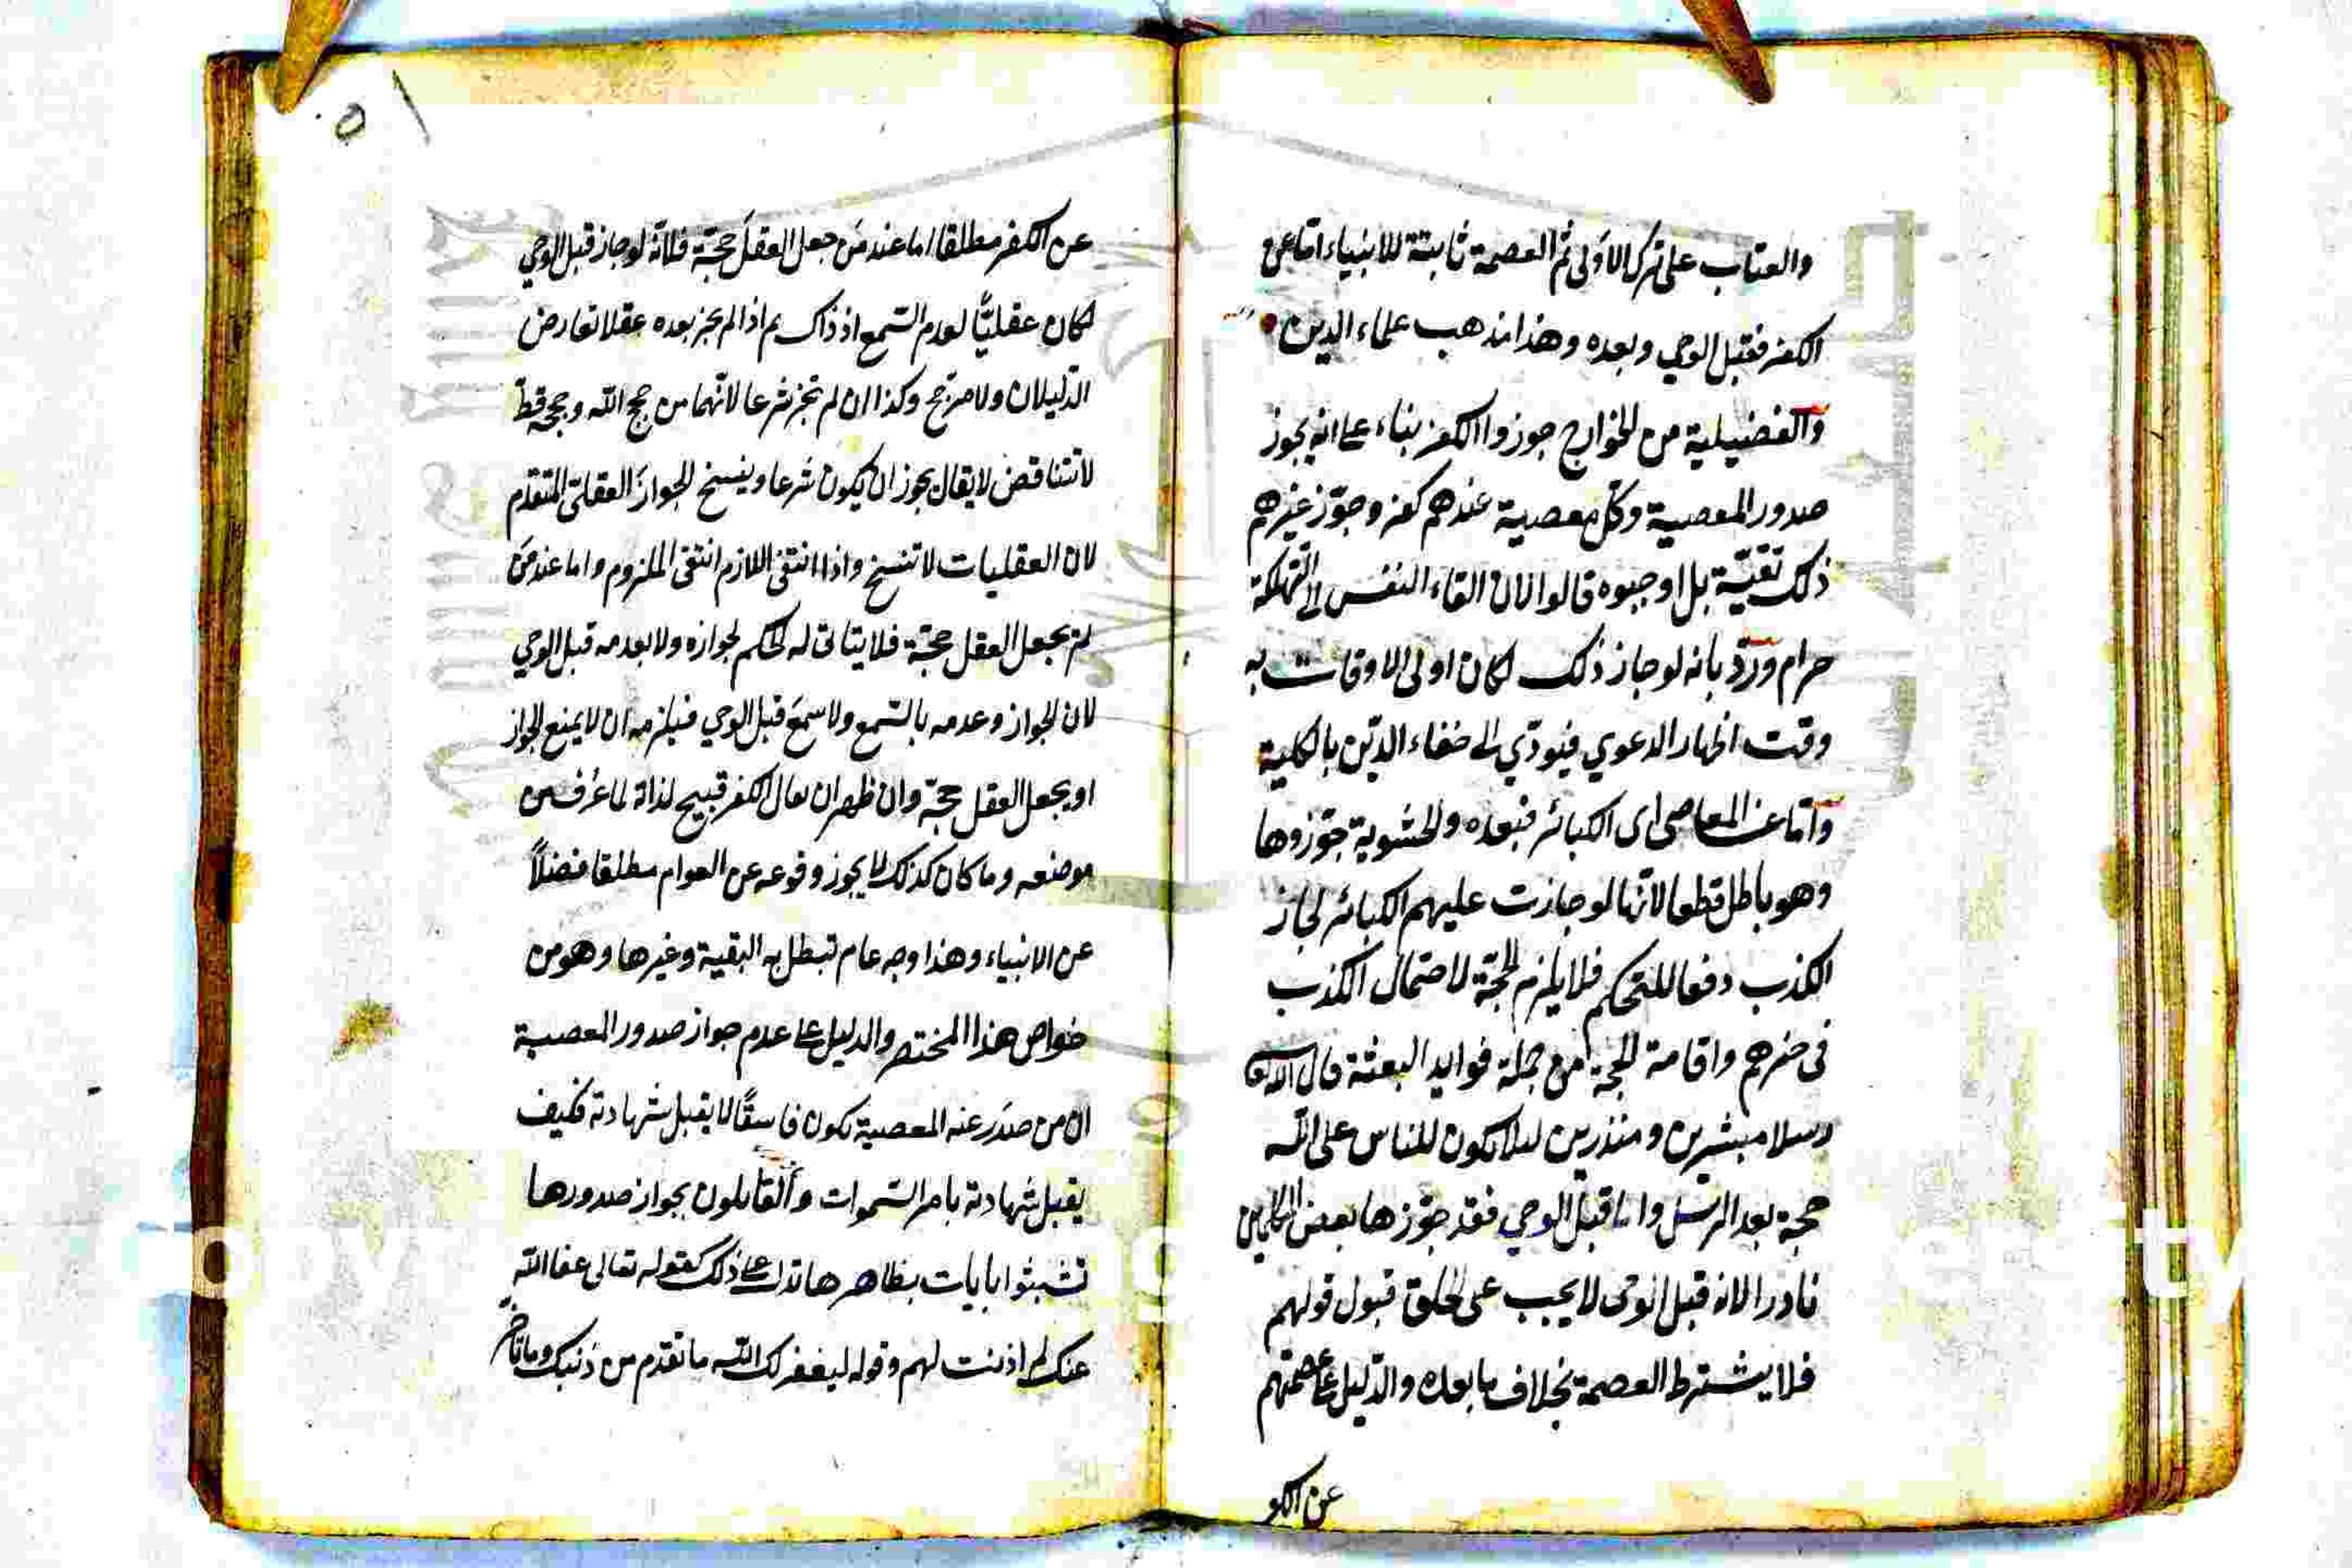 والعتاب على ترك الاولى ثم العصمة ثابتة للانبياء اما عن
الكفر فقبل الوحي وبعده وهذا مذهب علماء الدين
والفضيلية من الخوارج جوزوا الكفر بناء على انه يجوز
صدور المعصية وكل معصية عندهم كفر وجوّز غيرهم
ذلك تقيّة بل اوجبوه قالوا لان القاء النفس الى التهلكة
حرام وردّ بانه لو جاز ذلك لكان اولى الاوقات به
وقت اظهار الدعوي فيودّي الى خفاء الدّين بالكلية
وامّا عن المعاصى اى الكبائر فبعده والحشوية جوّزوها
وهو باطل قطعا لانّها لو جازت عليهم الكبائر لجاز
الكذب دفعا للتحكم فلا يلزم الحجّة لاحتمال الكذب
فى خبرهم واقامة الحجة من جملة فوايد البعثة قال الله تعا
رسلا مبشرين ومنذرين لئلا يكون للناس على الله
حجة بعد الرسل واما قبل الوحي فقد جوّزها بعض
نادرا لانه قبل الوحى لا يجب على الخلق قبول قولهم
فلا يشترط العصمة بخلاف ما بعده والدّليل على عصمتهم
عن الكو
٥١
عن الكفر مطلقا اما عند مَن جعل العقلَ حجّة فلانّه لو جاز قبل الوحي
لكان عقليًّا لعدم السّمع اذ ذاك ثم اذا لم يجز بعده عقلا تعارض
الدّليلان ولا مرجّح وكذا ان لم تجز شرعا لانّهما من حجج الله وحججه قطّ
لا تتناقض لا يقال يجوز ان يكون شرعا وينسخ الجوازَ العقلىّ المتقدم
لان العقليات لا تنسخ واذا انتفى اللازم انتفى الملزوم واما عند مَن
لم يجعل العقل حجّة فلا يتاتى له الحكم لجوازه ولا بعدمه قبل الوحي
لان الجواز وعدمه بالسّمع ولا سمعَ قبل الوحي فيلزمه ان لا يمنع الجواز
او يجعل العقل حجّة وان ظهر ان يقال الكفر قبيح لذاته لما عُرف من
موضعه وما كان كذلك لا يجوز وقوعه عن العوام مطلقا فضلاً
عن الانبياء وهذا وجه عام تبطل به البقية وغيرها وهو من
خواص هذا المختصر والدليل على عدم جواز صدور المعصية
ان من صدَر عنه المعصية يكون فاسقًا لا يقبل شهادته فكيف
يقبل شهادته بامر السّموات والقايلون بجواز صدورها
تشبثوا بايات بظاهرها تدل على ذلك كقوله تعالى عفا الله
عنك لم اذنت لهم وقوله ليغفر لك الله ما تقدم من ذنبك وما تاخر